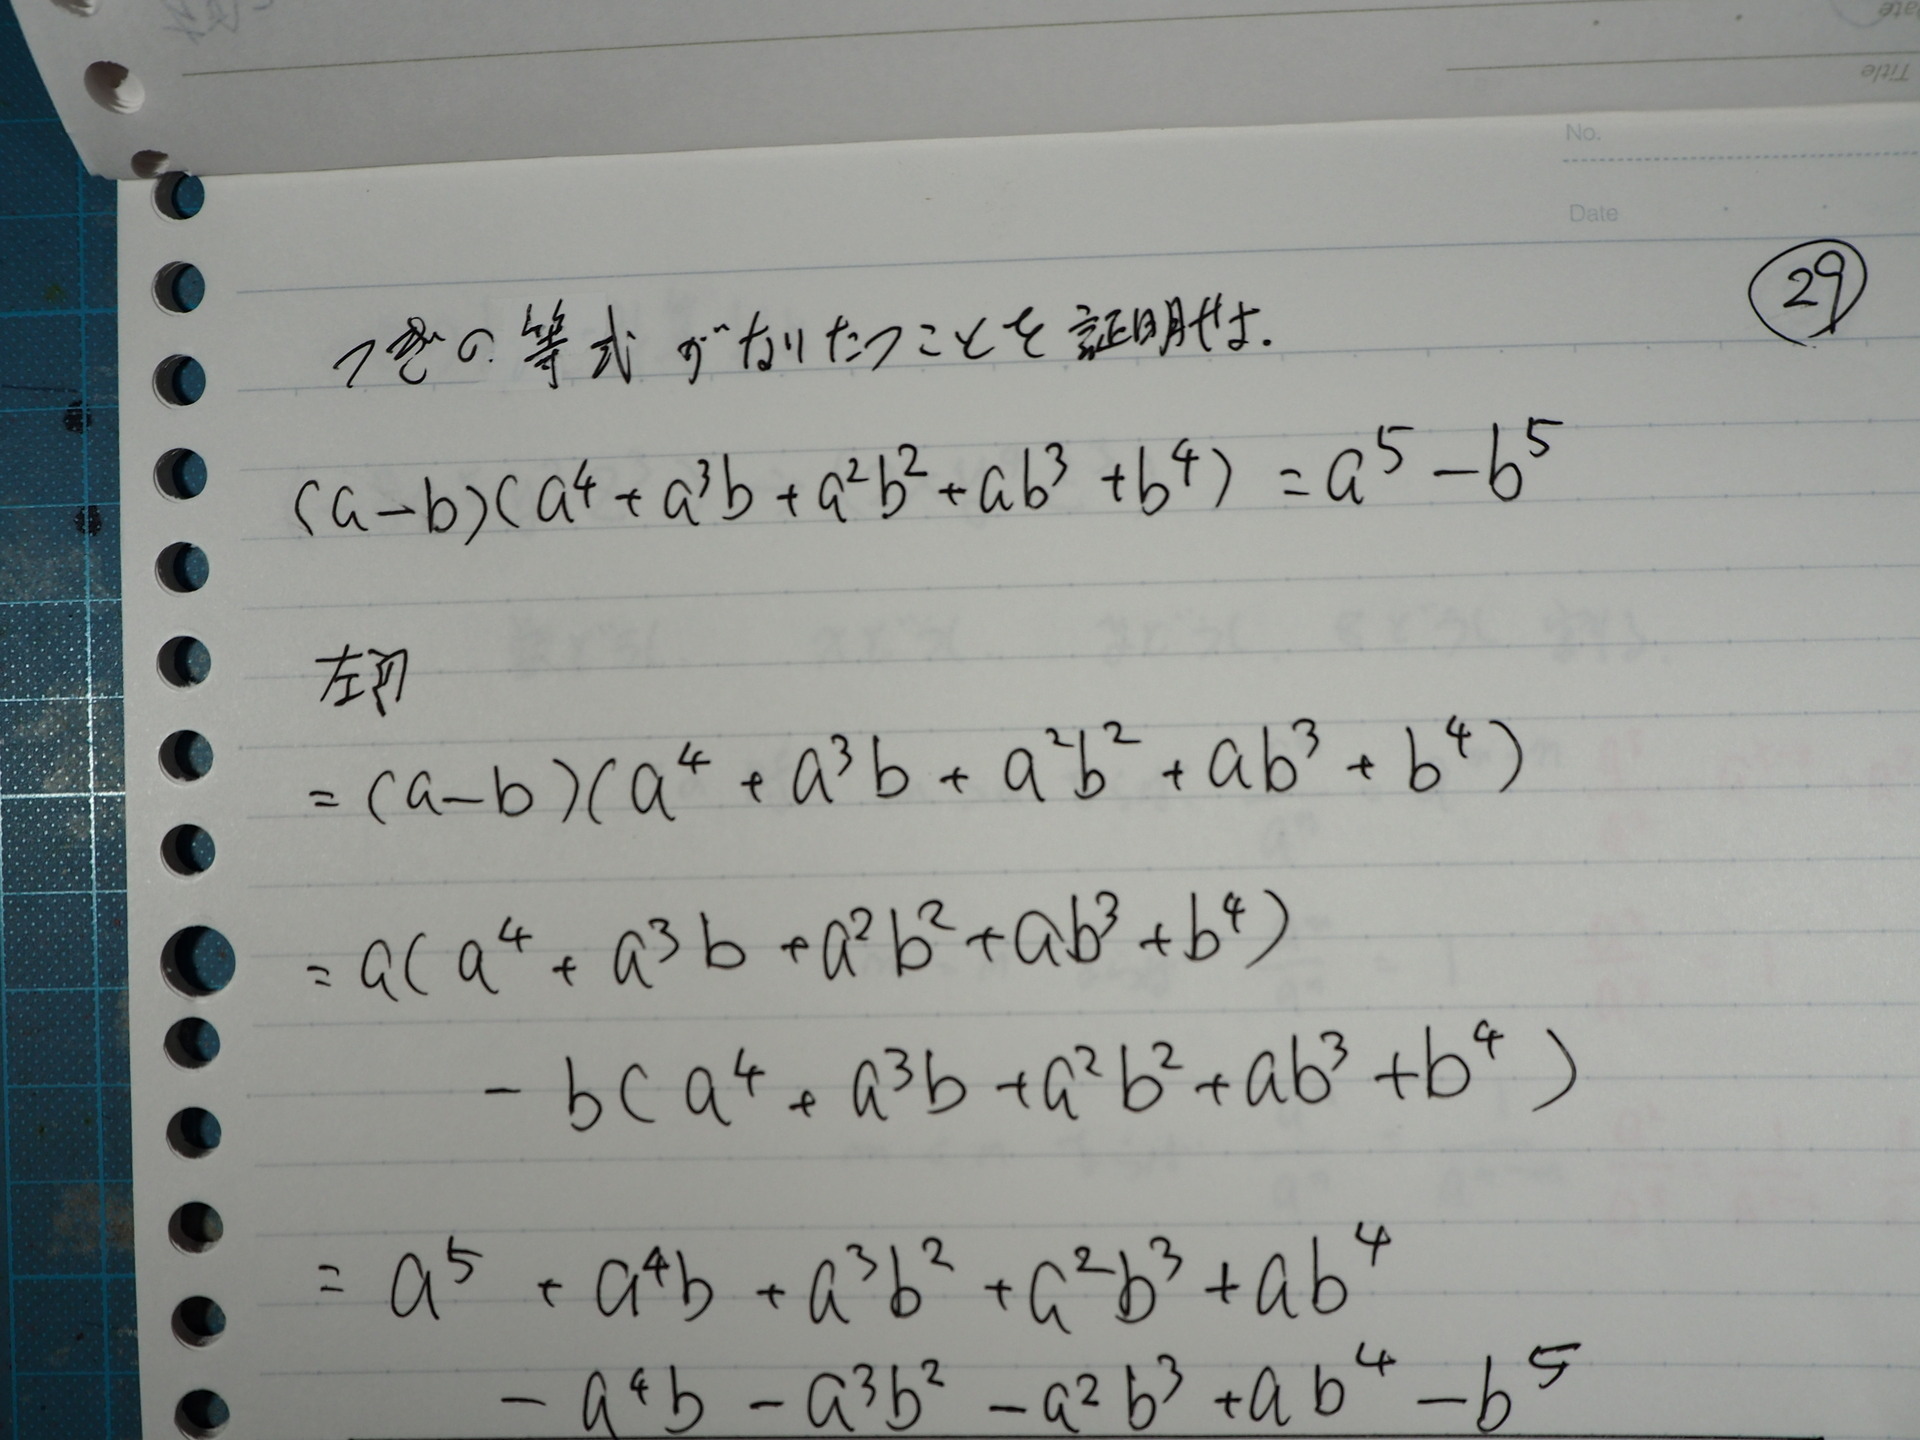 Date
Title
No.
Date
29
つぎの等式がなりたつことを証明せよ.
(a-b)(a⁴+a³b+a²b²+ab³+b⁴)=a⁵-b⁵
左辺
=(a-b)(a⁴+a³b+a²b²+ab³+b⁴)
=a(a⁴+a³b+a²b²+ab³+b⁴)
-b(a⁴+a³b+a²b²+ab³+b⁴)
=a⁵+a⁴b+a³b²+a²b³+ab⁴
-a⁴b-a³b²-a²b³+ab⁴-b⁵